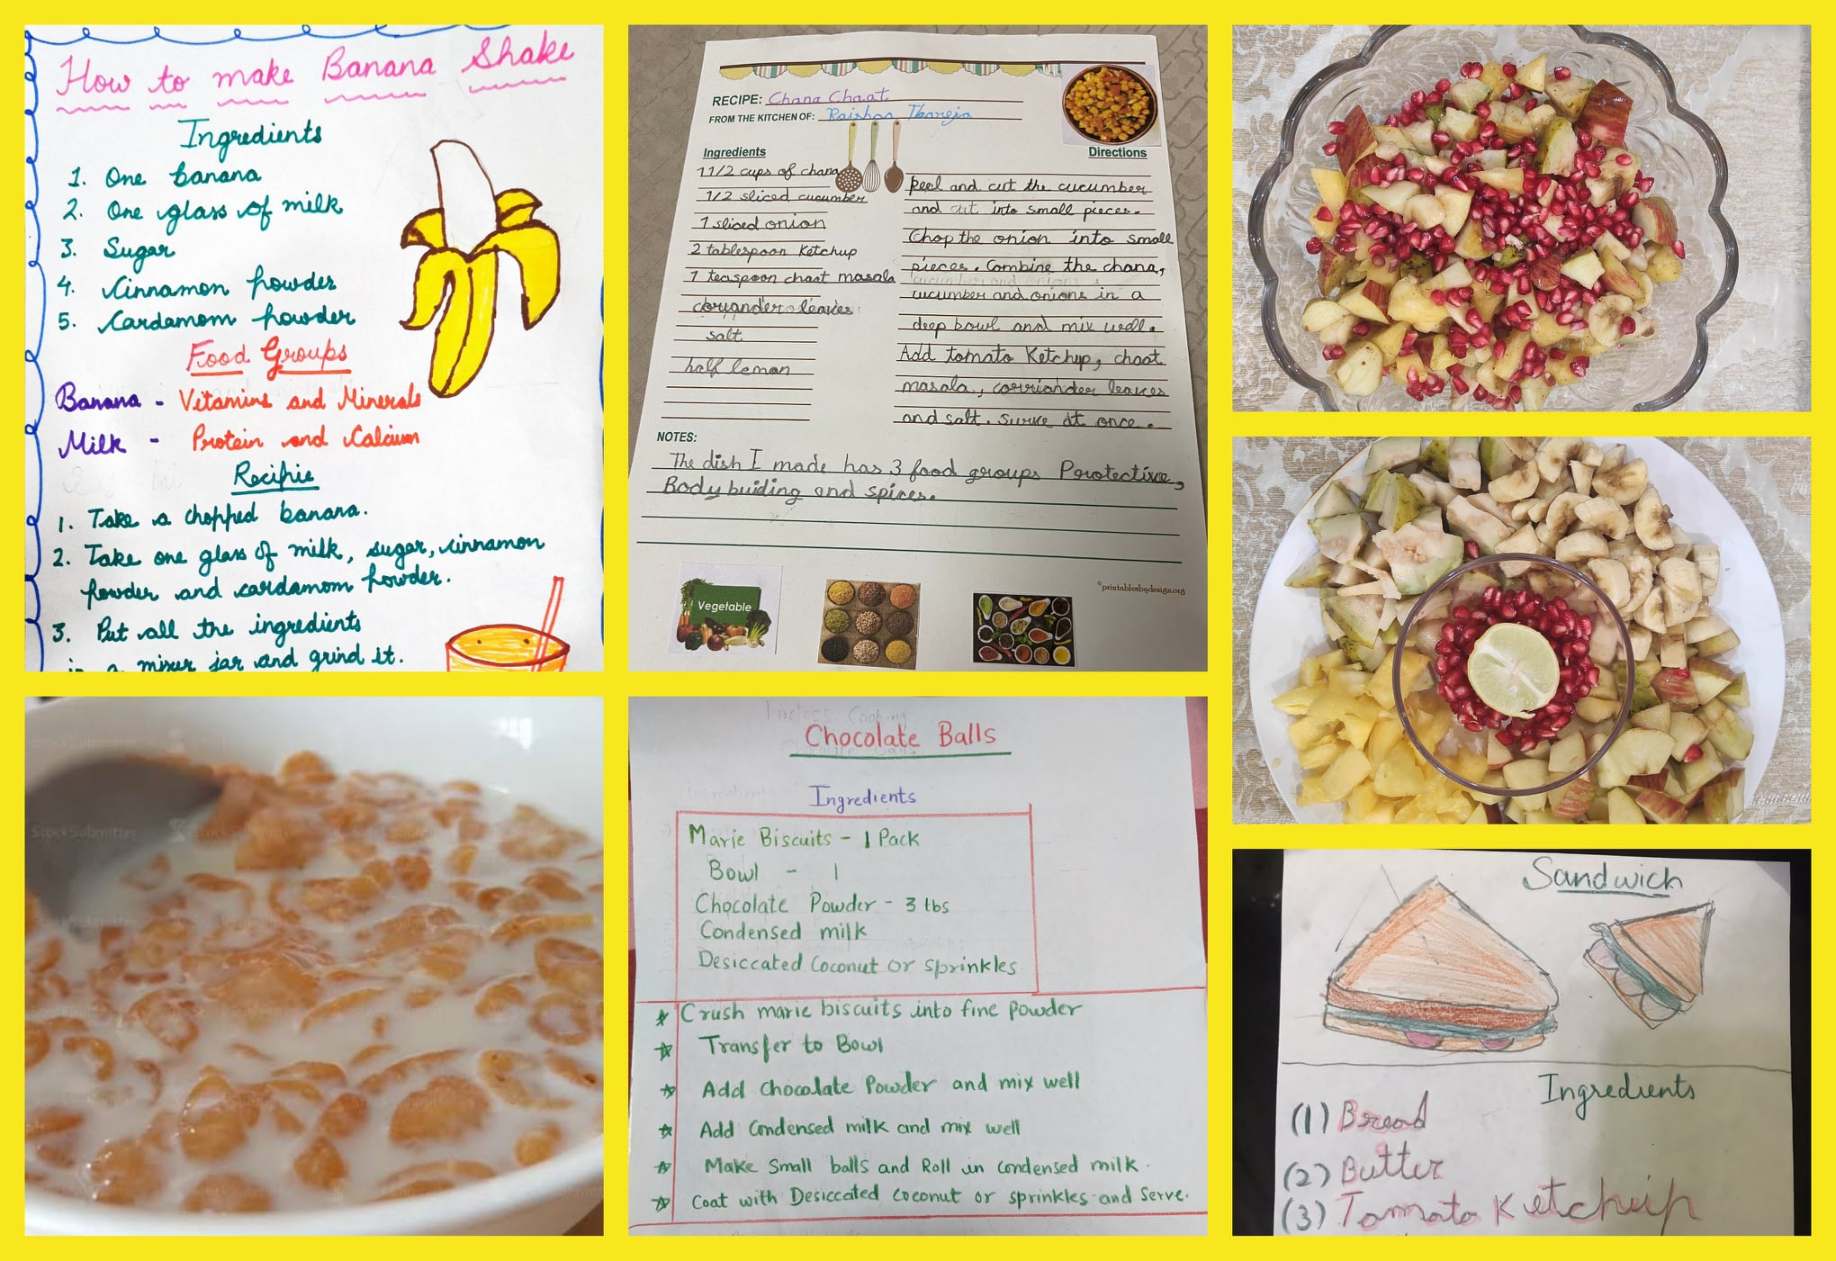 How to make Banana Shake
Ingredients
1. One banana
2. One glass of milk
3. Sugar
4. Cinnamon powder
5. Cardamom powder
Food Groups
Banana - Vitamins and Minerals
Milk - Protein and Calcium
Recipie
1. Take a chopped banana.
2. Take one glass of milk, sugar, cinnamon
powder and cardamom powder.
3. Put all the ingredients
in a mixer jar and grind it.
RECIPE: Chana Chaat
FROM THE KITCHEN OF:
Ingredients
1 1/2 cups of chana
1/2 sliced cucumber
1 sliced onion
2 tablespoon Ketchup
1 teaspoon chaat masala
coriander leaves
salt
half lemon
Directions
Peel and cut the cucumber
and cut into small pieces.
Chop the onion into small
pieces. Combine the chana,
cucumber and onions in a
deep bowl and mix well.
Add tomato Ketchup, chaat
masala, corriander leaves
and salt. Surve at once.
NOTES:
The dish I made has 3 food groups Porotective,
Body buiding and spices.
Vegetable
©printablesbydesign.org
Stock Submitter
Chocolate Balls
Ingredients
Marie Biscuits - 1 Pack
Bowl - 1
Chocolate Powder - 3 tbs
Condensed milk
Desiccated Coconut or sprinkles
Crush marie biscuits into fine powder
Transfer to Bowl
Add chocolate Powder and mix well
Add Condensed milk and mix well
Make small balls and Roll in condensed milk.
Coat with Desiccated coconut or sprinkles and Serve.
Sandwich
Ingredients
(1) Bread
(2) Butter
(3) Tomato Ketchup